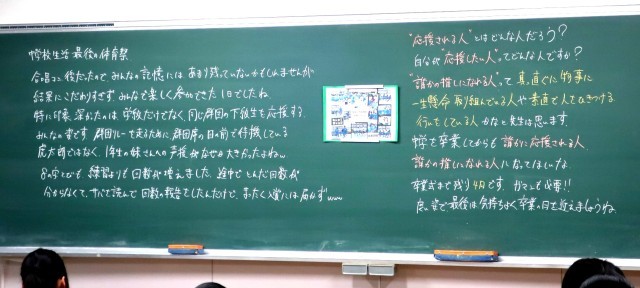 中学校生活 最後の体育祭
合唱コン後だったので、みんなの記憶には、あまり残っていないかもしれませんが
結果にこだわりすぎず、みんなで楽しく参加できた1日でしたね。
特に印象深かったのは、学級だけでなく、同じ群団の下級生を応援する
みんなの姿です。群団リレーを走るために群団席の目の前で待機している
虎太郎ではなく、1年生の妹さんへの声援がなぜか大きかったよね
8の字とびも 練習よりも回数が増えました。途中でとんだ回数が
分からなくて、すべて読んで回数の報告をしたんだけど、まったく入賞には届かずwww
"応援される人"とはどんな人だろう？
自分が"応援したい人"ってどんな人ですか？
"誰かの推しになれる人"って真っ直ぐに物事に
一生懸命取り組んでいる人や素直で人をひきつける
行いをしている人かなと先生は思います。
中学を卒業してからも誰かに応援される人
誰かの推しになれる人になってほしいな
卒業式まで残り4月です。ガマンも必要!!
良い姿で、最後は気持ちよく卒業の日を迎えましょうね